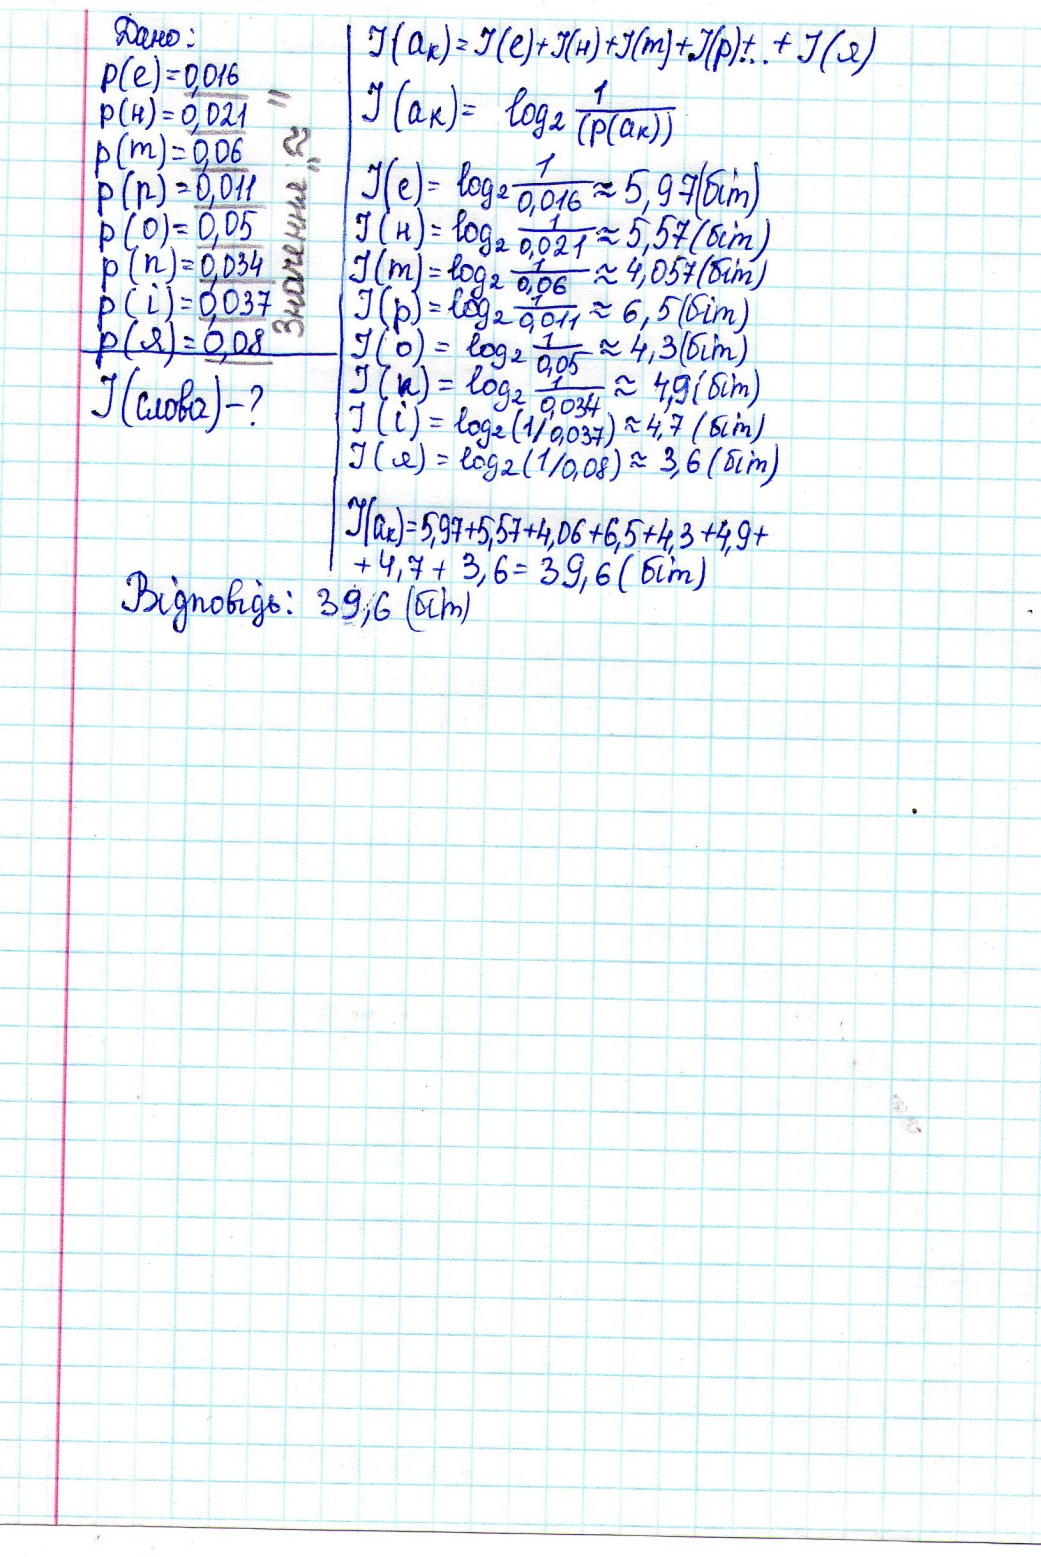 Дано:
p(е)=0,016
p(н)=0,021
p(т)=0,06
p(р)=0,011
p(о)=0,05
p(п)=0,034
p(і)=0,037
p(я)=0,08
Значення „≈"
I(слова)-?
I(aк)=I(е)+I(н)+I(т)+I(р)+..+I(я)
I(aк)= log2 1/(p(aк))
I(е)= log2 1/0,016 ≈ 5,97(біт)
I(н)= log2 1/0,021 ≈ 5,57(біт)
I(т)= log2 1/0,06 ≈ 4,057(біт)
I(р)= log2 1/0,011 ≈ 6,5(біт)
I(о)= log2 1/0,05 ≈ 4,3(біт)
I(п)= log2 1/0,034 ≈ 4,9(біт)
I(і)= log2(1/0,037)≈4,7(біт)
I(я)=log2(1/0,08)≈ 3,6(біт)
I(aк)=5,97+5,57+4,06+6,5+4,3+4,9+
+4,7+3,6=39,6(біт)
Відповідь: 39,6(біт)